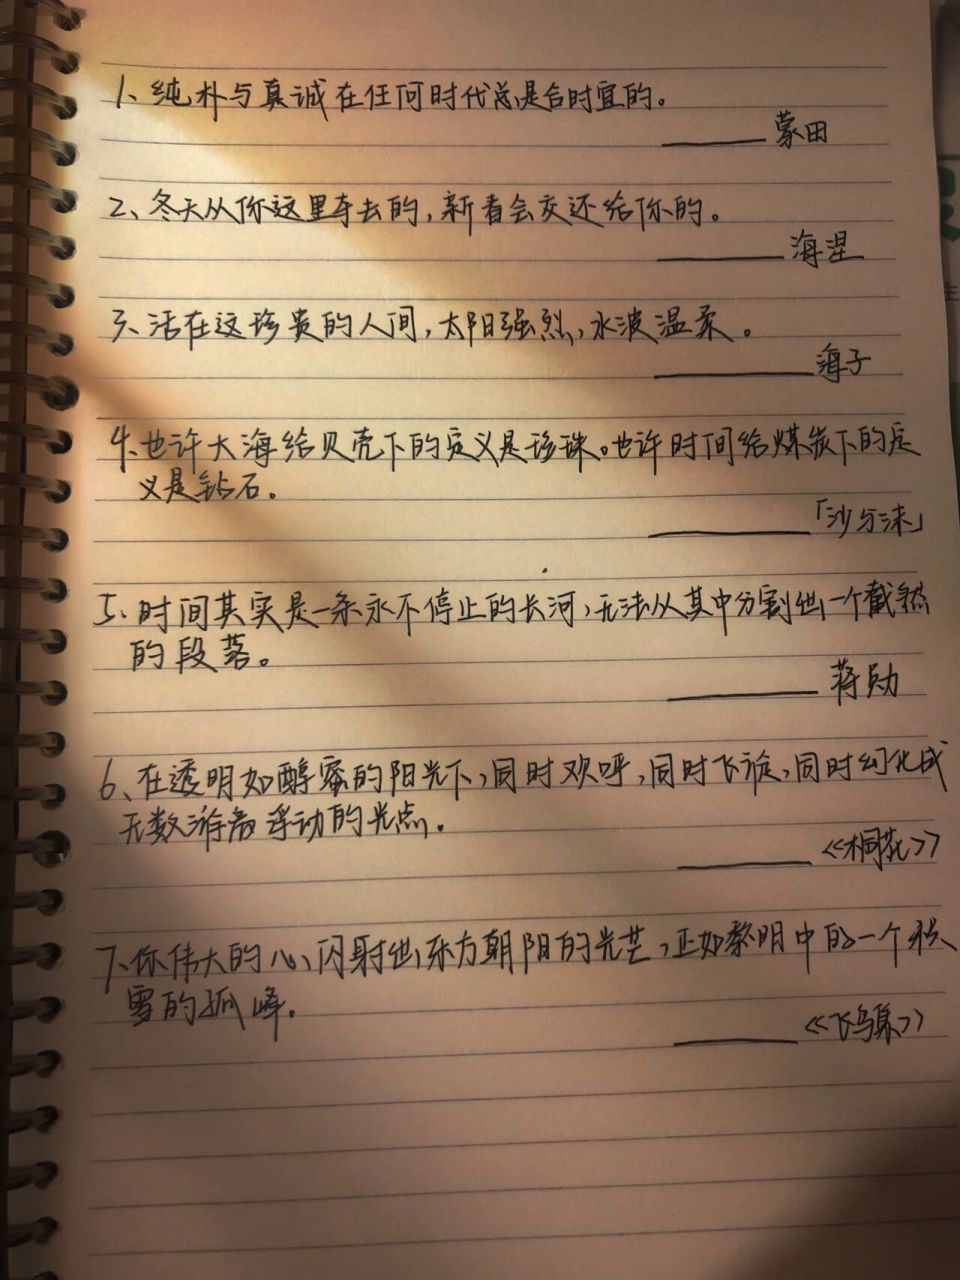 1、纯朴与真诚在任何时代总是合时宜的。
——蒙田
2、冬天从你这里夺去的，新春会交还给你的。
——海涅
3、活在这珍贵的人间，太阳强烈，水波温柔。
——海子
4、也许大海给贝壳下的定义是珍珠。也许时间给煤炭下的定
义是钻石。
——「沙与沫」
5、时间其实是一条永不停止的长河，无法从其中分割出一个截然
的段落。
——蒋勋
6、在透明如醇蜜的阳光下，同时欢呼，同时飞旋，同时幻化成
无数游离浮动的光点。
——《桐花》
7、你伟大的心，闪射出东方朝阳的光芒，正如黎明中的一个积
雪的孤峰。
——《飞鸟集》